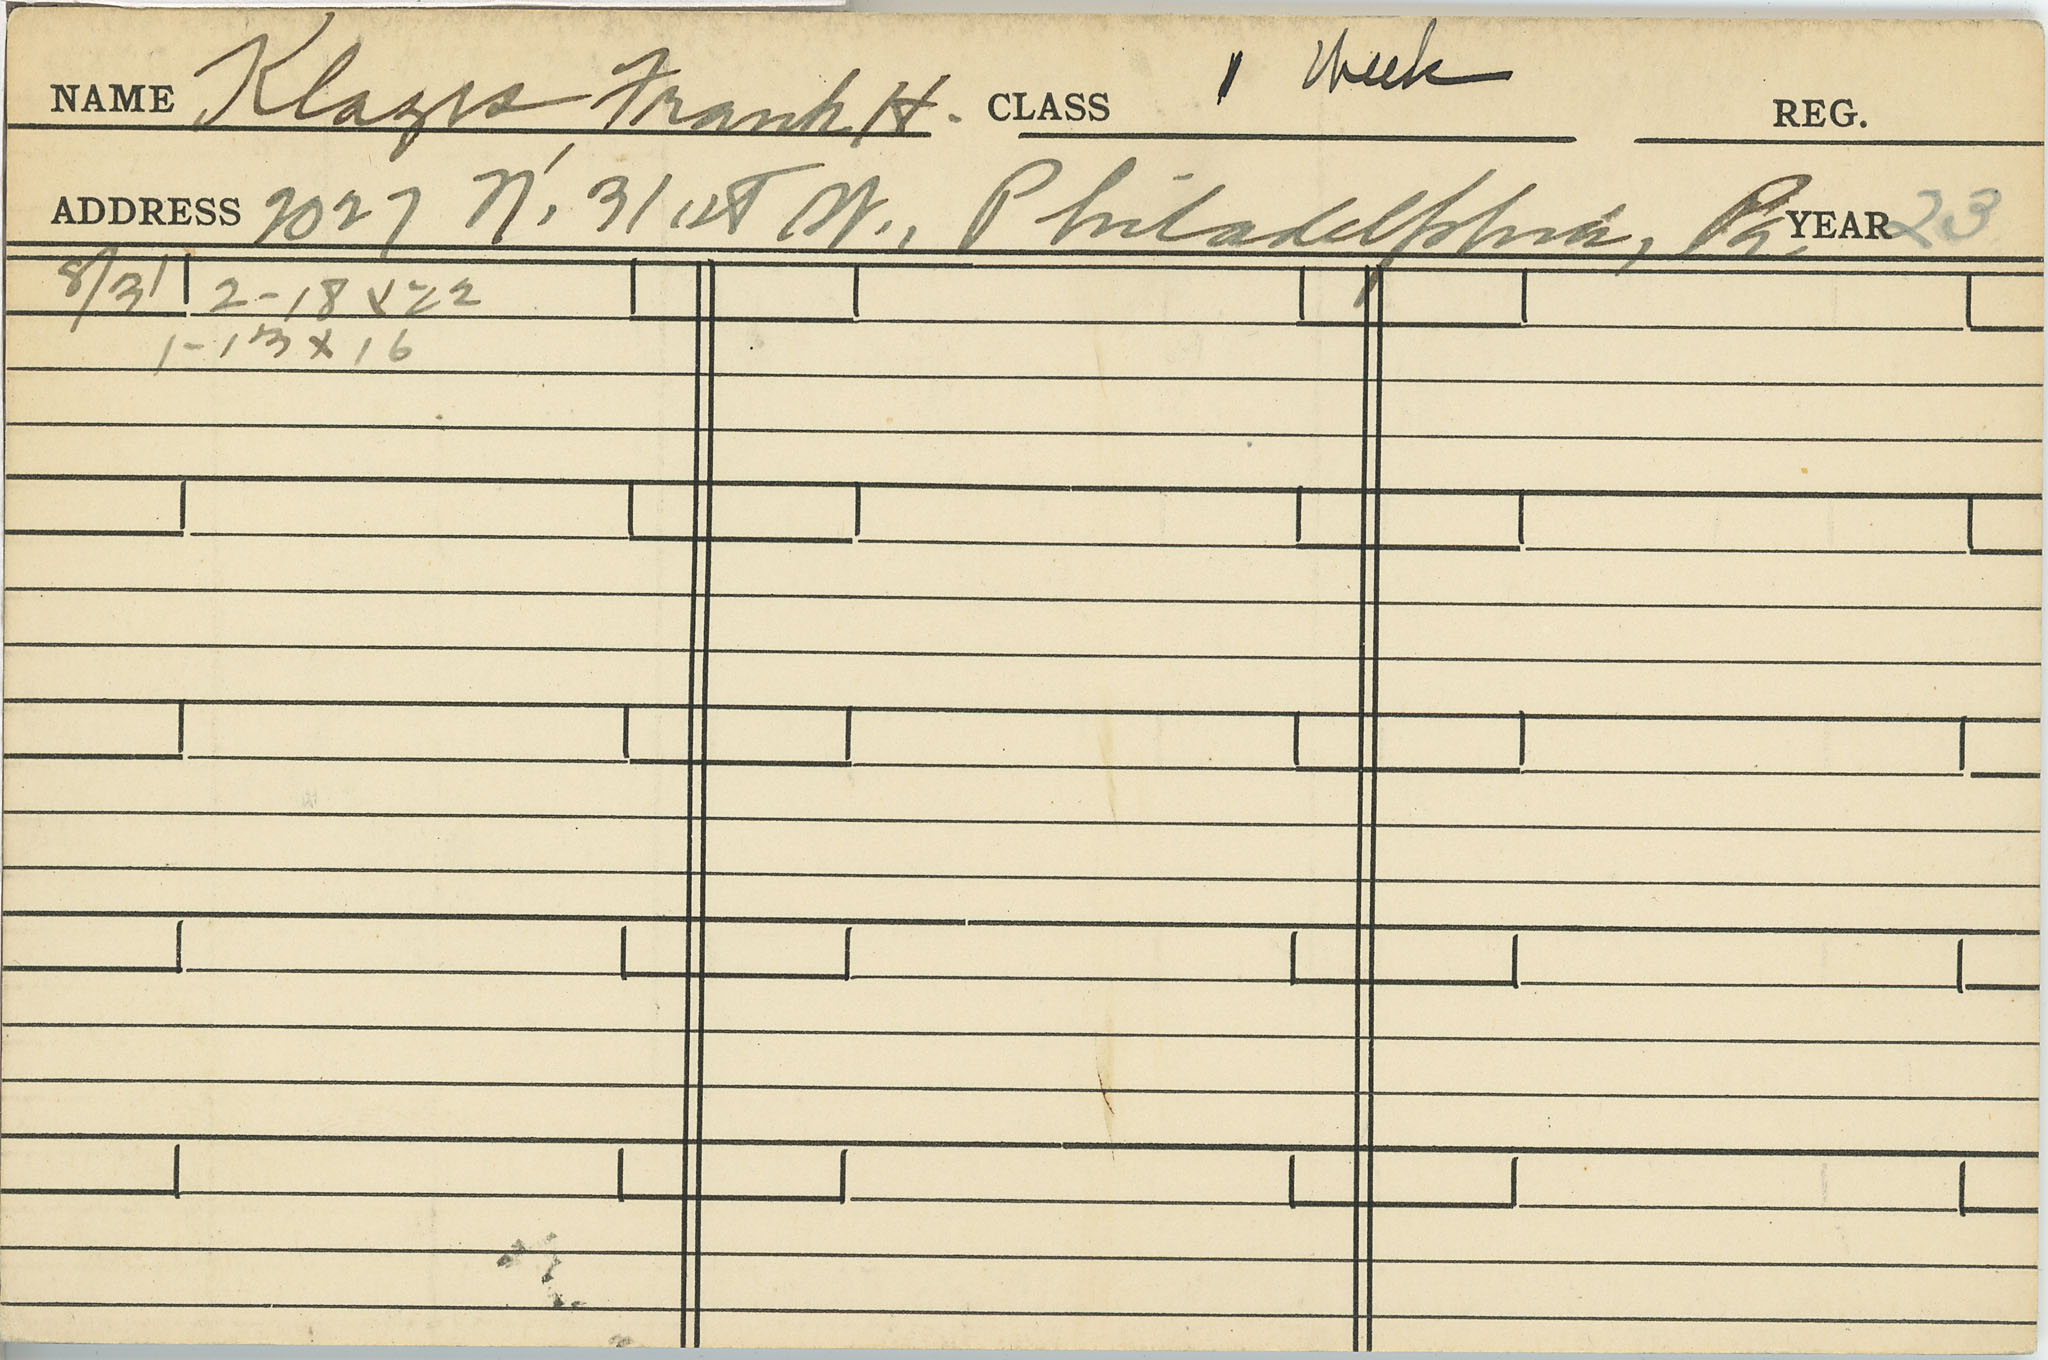 NAME Klages Frank H. CLASS 1 Week REG.
ADDRESS 2027 N. 31 ST Philadelphia, Pa. YEAR 23
8/31 2-18x22
1-13x16